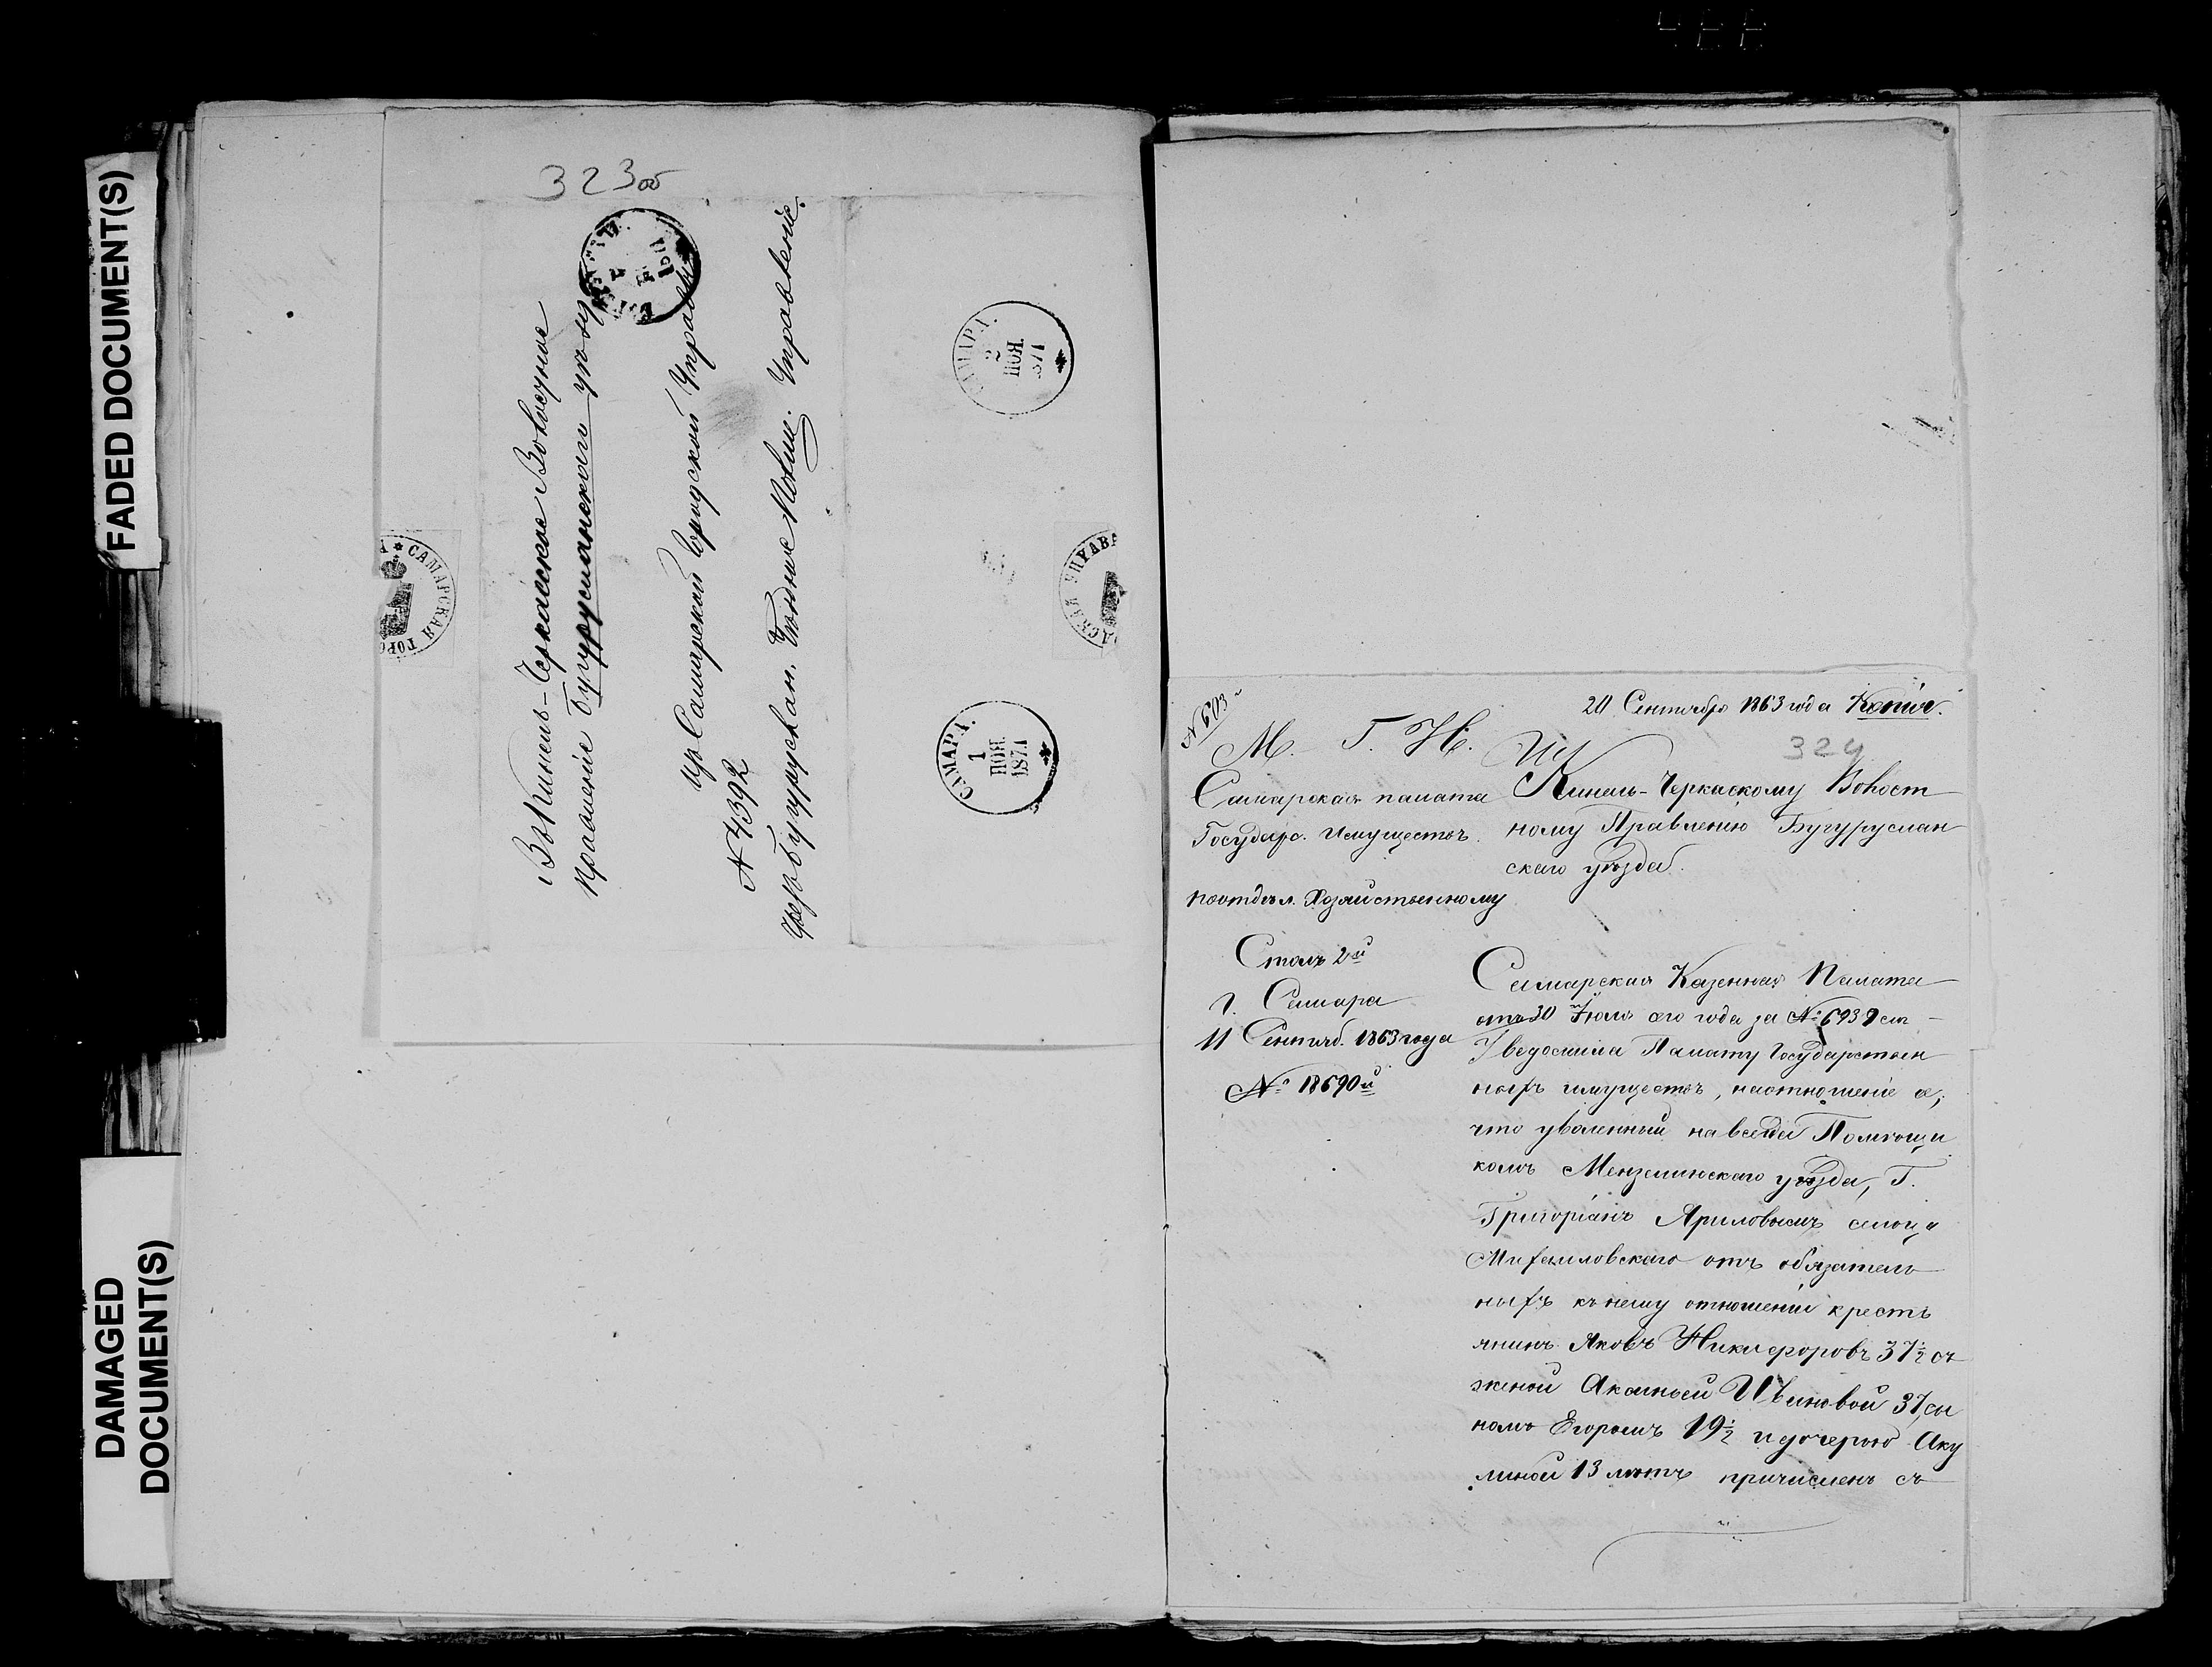 488
FADED DOCUMENT(S)
DAMAGED
DOCUMENT(S)
323об
Въ Кинель-Черкаское Волосуное
Правленіе Бугурусланскаго уезду
изъ Самарской Городской Управы
N 4392
чрезъ Бугуруслан. Уездное Полиц. Управленіе.
САМАРСКАЯ ГОРО
САМАРА.
2
НОЯ.
1871
САМАРА.
1
НОЯ.
1871
N 603
20 Сентября 1863 года Копія.
324
М. Г. И.
Самарская палата
Государс. Имуществъ.
по отдѣл. Хозяйственному
Столъ 2й
г. Самара
11 Сентяб. 1863 года
№ 18690й
Кинель-Черкаскому Волост
ному Правлению Бугуруслан
скаго уѣзда.
Самарская Казенная Палата
отъ 30 Іюля сего года за № 6939
Уведомила Палату Государствен
ныхъ имуществъ, на отношеніе ея,
что уволенный на всегда Помѣщи
комъ Мензелинскаго уѣзда, Г.
Григоріемъ Ариловымъ сельца
Михаиловскаго отъ обязатель
ныхъ къ нему отношеній кресть
янинъ Яковъ Никифоровъ 37½ съ
женой Аксиньей Ивановой 37, сы
номъ Егоромъ 19½ и дочерью Аку
линой 13 лѣтъ причисленъ съ